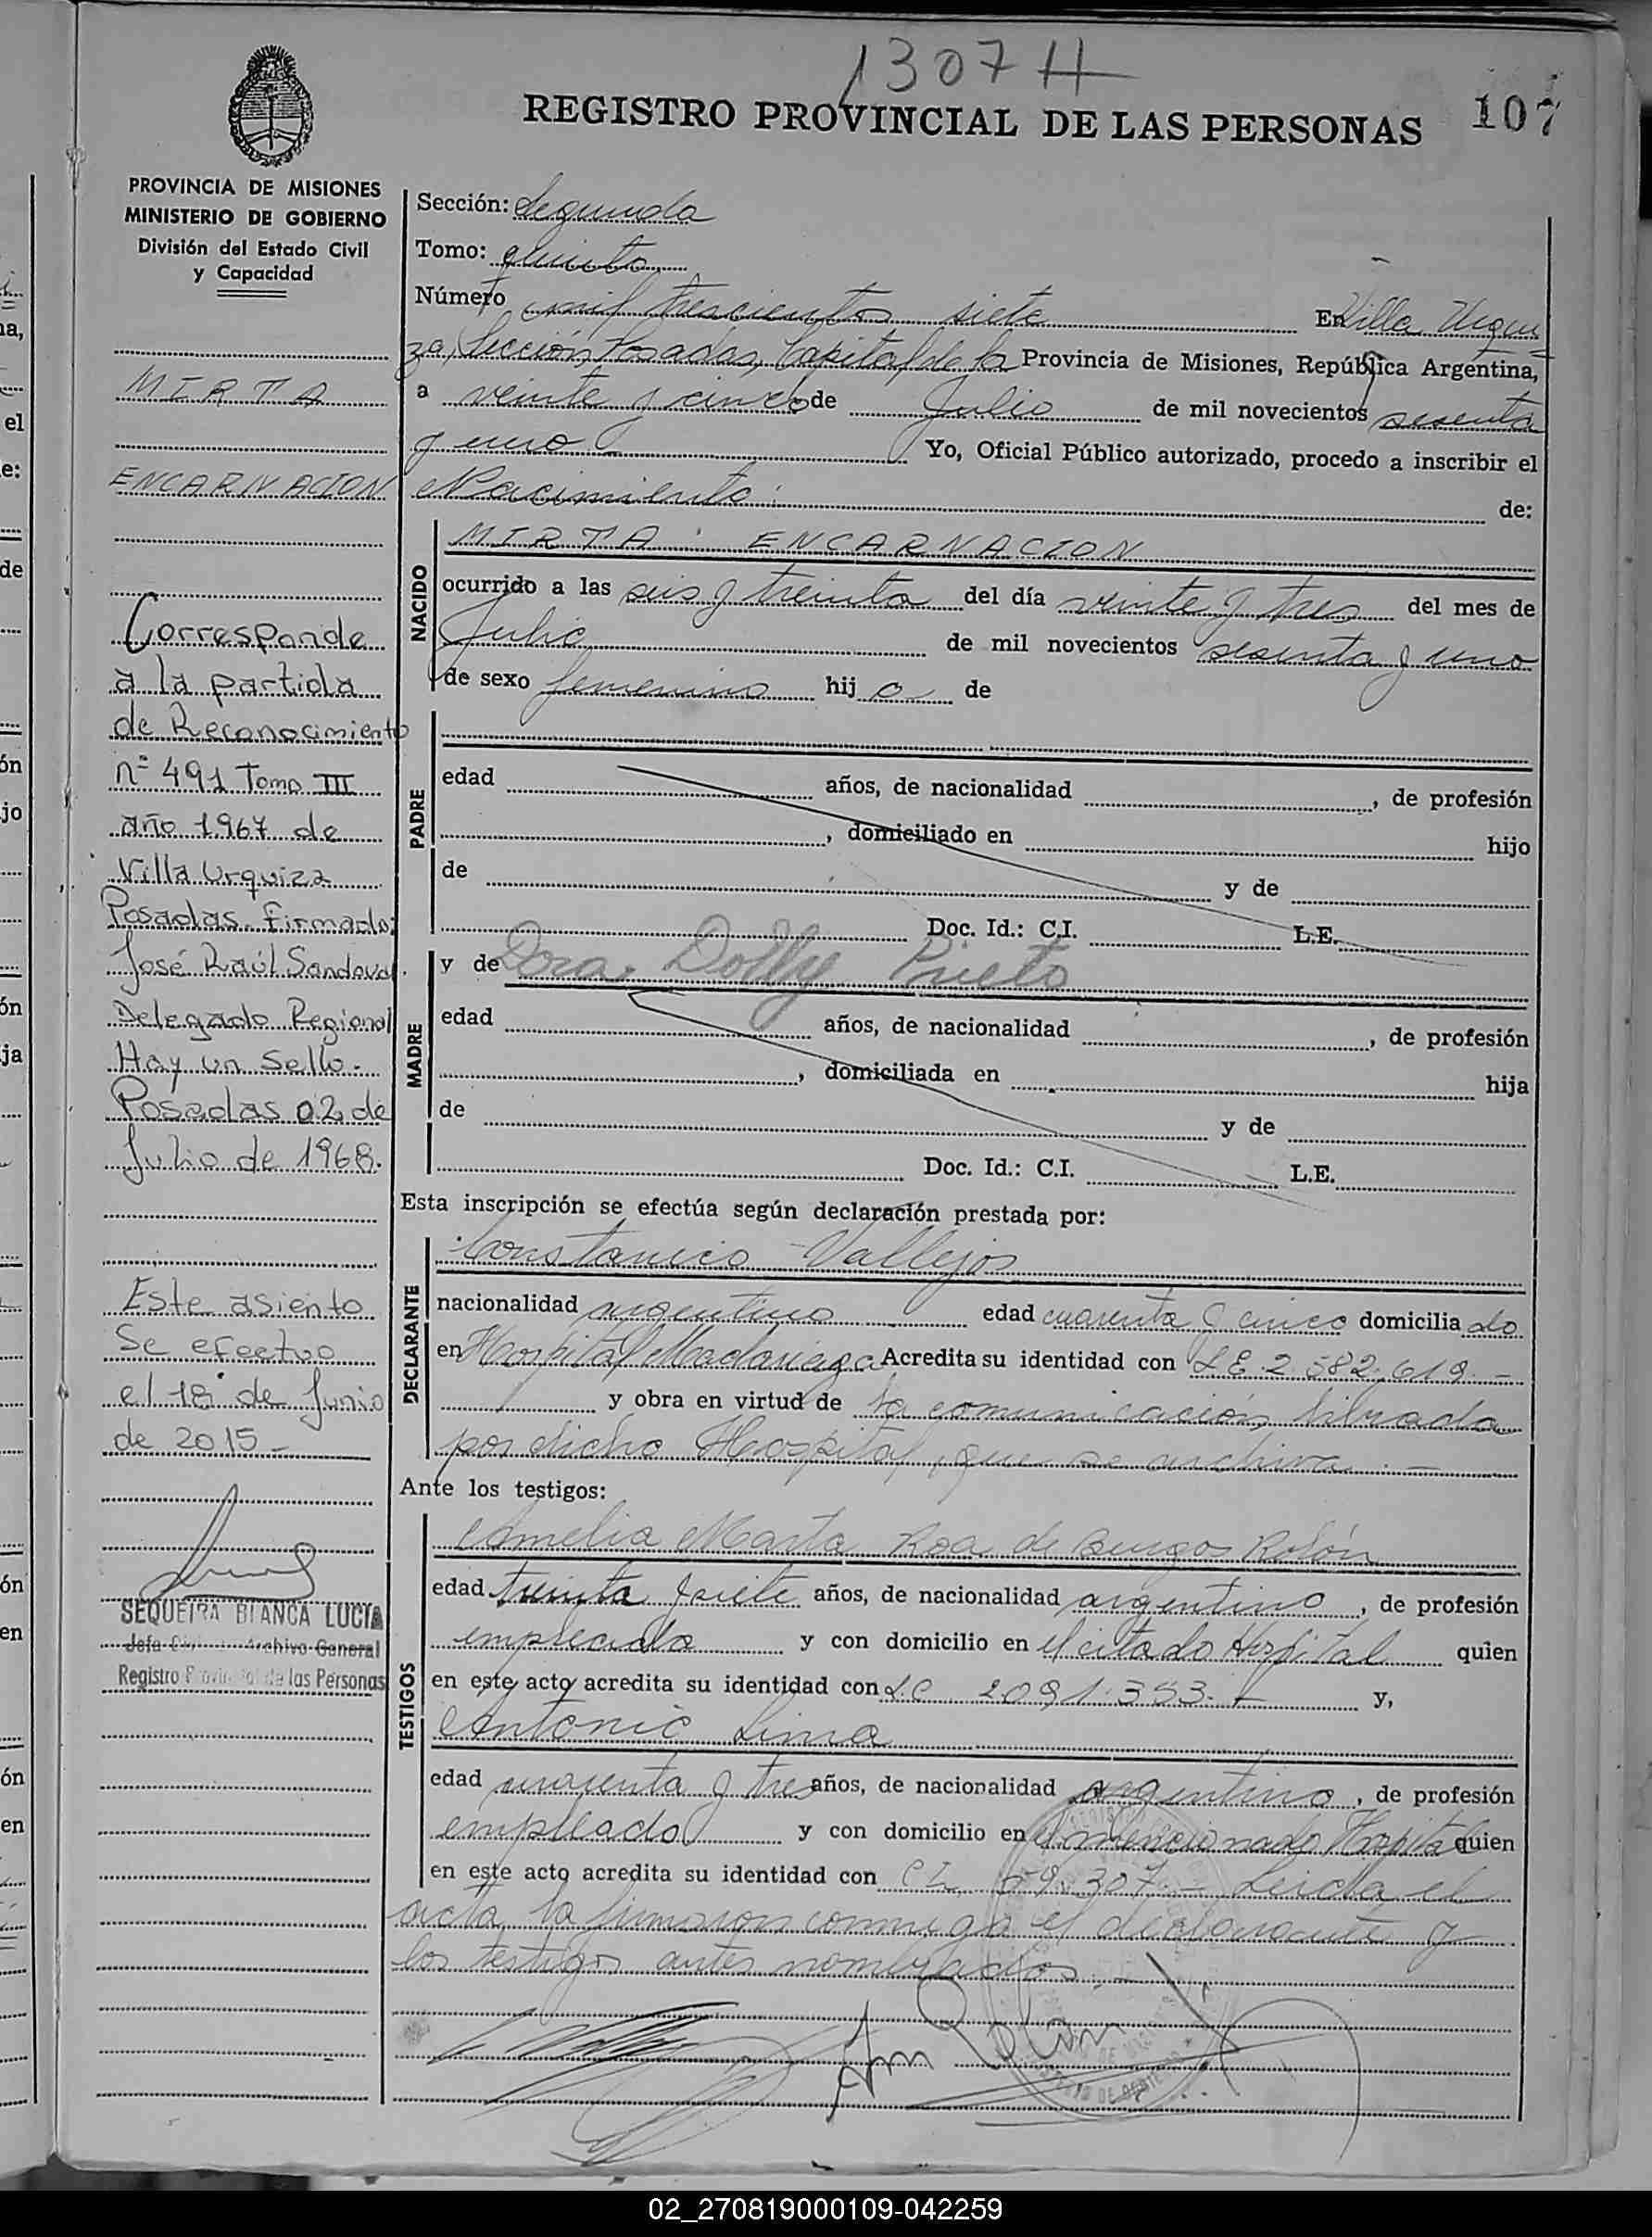 1307 H
REGISTRO PROVINCIAL DE LAS PERSONAS 107
PROVINCIA DE MISIONES
MINISTERIO DE GOBIERNO
División del Estado Civil
y Capacidad
MIRTA
ENCARNACION
Corresponde
a la partida
de Reconocimiento
nº 491 Tomo III
año 1967 de
Villa Urquiza
Posadas. Firmado:
José Raúl Sandoval.
Delegado Regional
Hay un Sello.
Posadas 02 de
Julio de 1968.
Este asiento
se efectuo
el 18 de Junio
de 2015 -
SEQUEIRA BLANCA LUCIA
Jefa Archivo General
Registro Provincial de las Personas
Sección: Segunda
Tomo: quinto
Número mil trescientos siete En Villa Urqui
za, Sección Posadas, Capital de la Provincia de Misiones, República Argentina,
a veinte y cinco de Julio de mil novecientos sesenta
y uno Yo, Oficial Público autorizado, procedo a inscribir el
Nacimiento de:
NACIDO
MIRTA ENCARNACION
ocurrido a las seis y treinta del día veinte y tres del mes de
Julio de mil novecientos sesenta y uno
de sexo femenino hij a de
PADRE
edad años, de nacionalidad , de profesión
, domiciliado en hijo
de y de
Doc. Id.: C.I. L.E.
MADRE
y de Dora Dolly Prieto
edad años, de nacionalidad , de profesión
, domiciliada en hija
de y de
Doc. Id.: C.I. L.E.
Esta inscripción se efectúa según declaración prestada por:
DECLARANTE
Constancio Vallejos
nacionalidad argentino edad cuarenta y cinco domicilia do
en Hospital Madariaga Acredita su identidad con L E 2.582.619. -
y obra en virtud de la comunicación librada
por dicho Hospital, que se archiva. -
Ante los testigos:
TESTIGOS
Amelia Marta Roa de Burgos Rolón
edad treinta y siete años, de nacionalidad argentino, de profesión
empleada y con domicilio en el citado Hospital quien
en este acto acredita su identidad con L.C 2091.353. - y,
Antonio Lima
edad cuarenta y tres años, de nacionalidad argentino, de profesión
empleado y con domicilio en el mencionado Hospital quien
en este acto acredita su identidad con C I. 59.307. - Leida el
acta, la firmaron conmigo el declarante y
los testigos antes nombrados. -
02_270819000109-042259